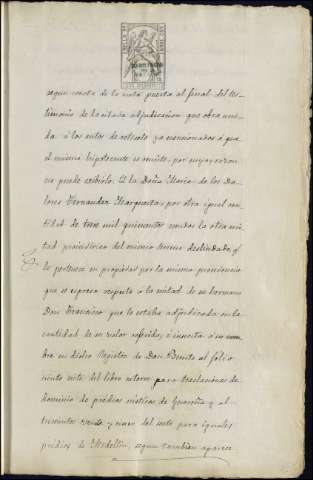 segun consta de la nota puesta al final del tes-
timonio de la citada adjudicacion que obra uni-
da á los autos de retracto ya mencionados á que
el mismo hipotecante se remite, por cuya razon
no puede exibirlo. Á la Doña Maria de los Do-
lores Fernandez Marqueta, por otra igual can-
tidad de trece mil quinientos escudos la otra mi-
tad proindivisa del mismo terreno deslindado, q.e
le pertenece en propiedad por la misma procedencia
que se expresa respecto á la mitad de su hermano
Don Franciano que le estaba adjudicada en la
cantidad de su valor referido, é inscrita á su nom-
bre en dicho Registro de Don Benito al folio
ciento siete del libro catorce para traslaciones de
dominio de prédios rústicos de Guareña y al
trescientos ochenta y cinco del sesto para iguales
prédios de Medellin, segun tambien aparece